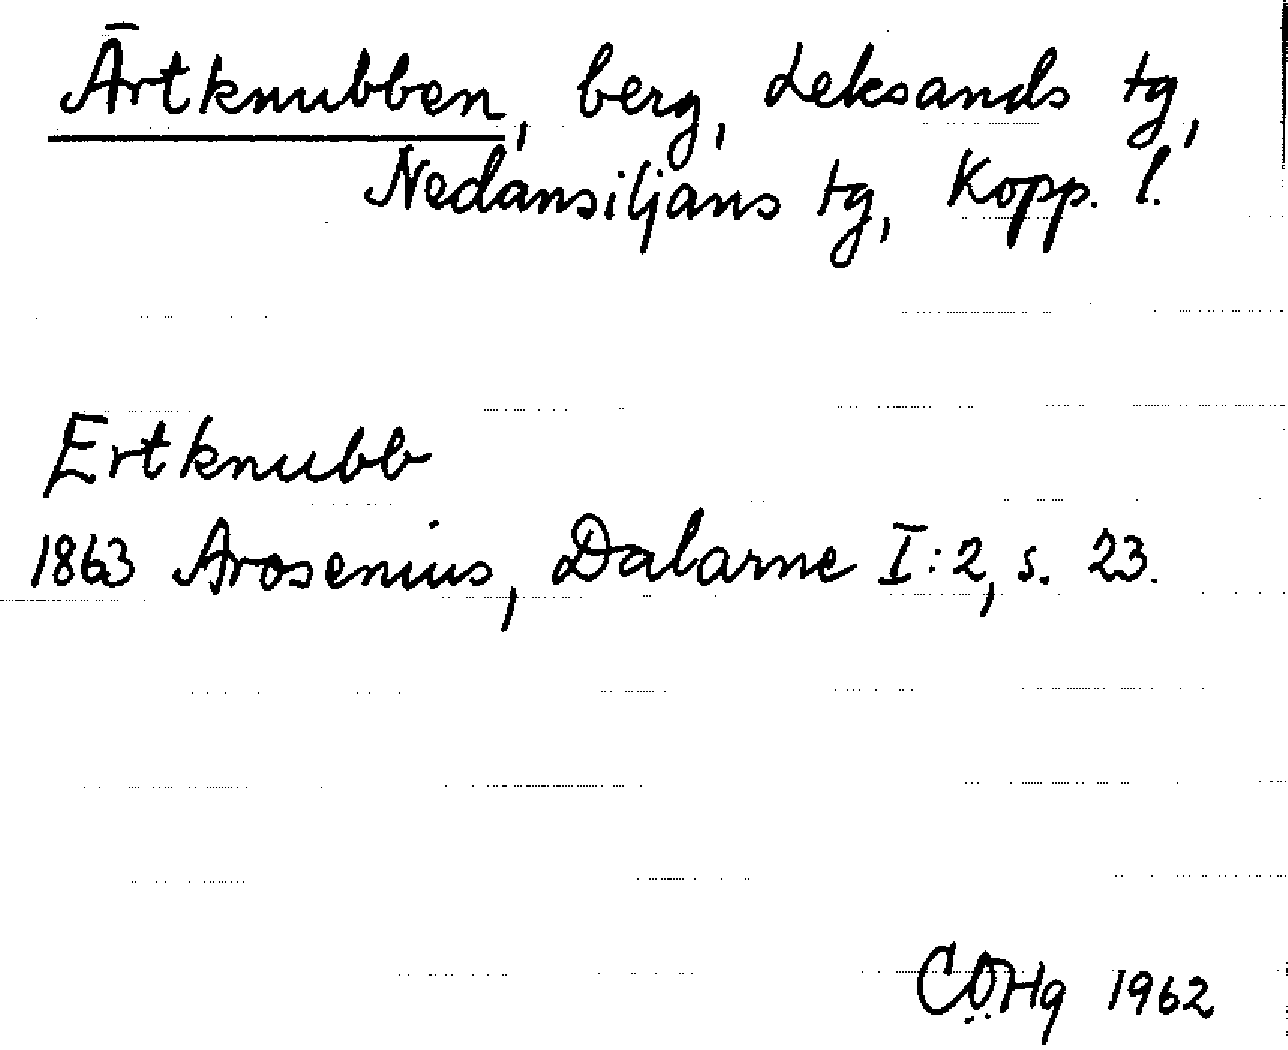 Ärtknubben, berg, Leksands tg,
Nedansiljans tg, Kopp. l.
Ertknubb
1863 Arosenius, Dalarne I:2, s. 23.
CÖHg 1962